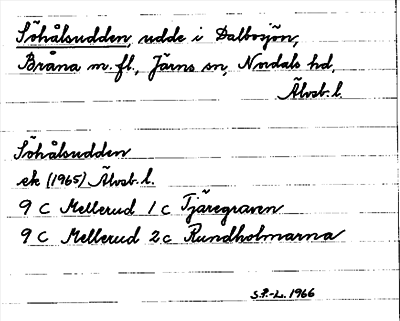 Söhålsudden, udde i Dalbosjön,
Bråna m.fl., Järns sn, Nordals hd,
Älvsb. l.
Söhålsudden
ek (1965) Älvsb. l.
9 C Mellerud 1 c Tjäregraven
9 C Mellerud 2 c Rundholmarna
S.P.-L. 1966